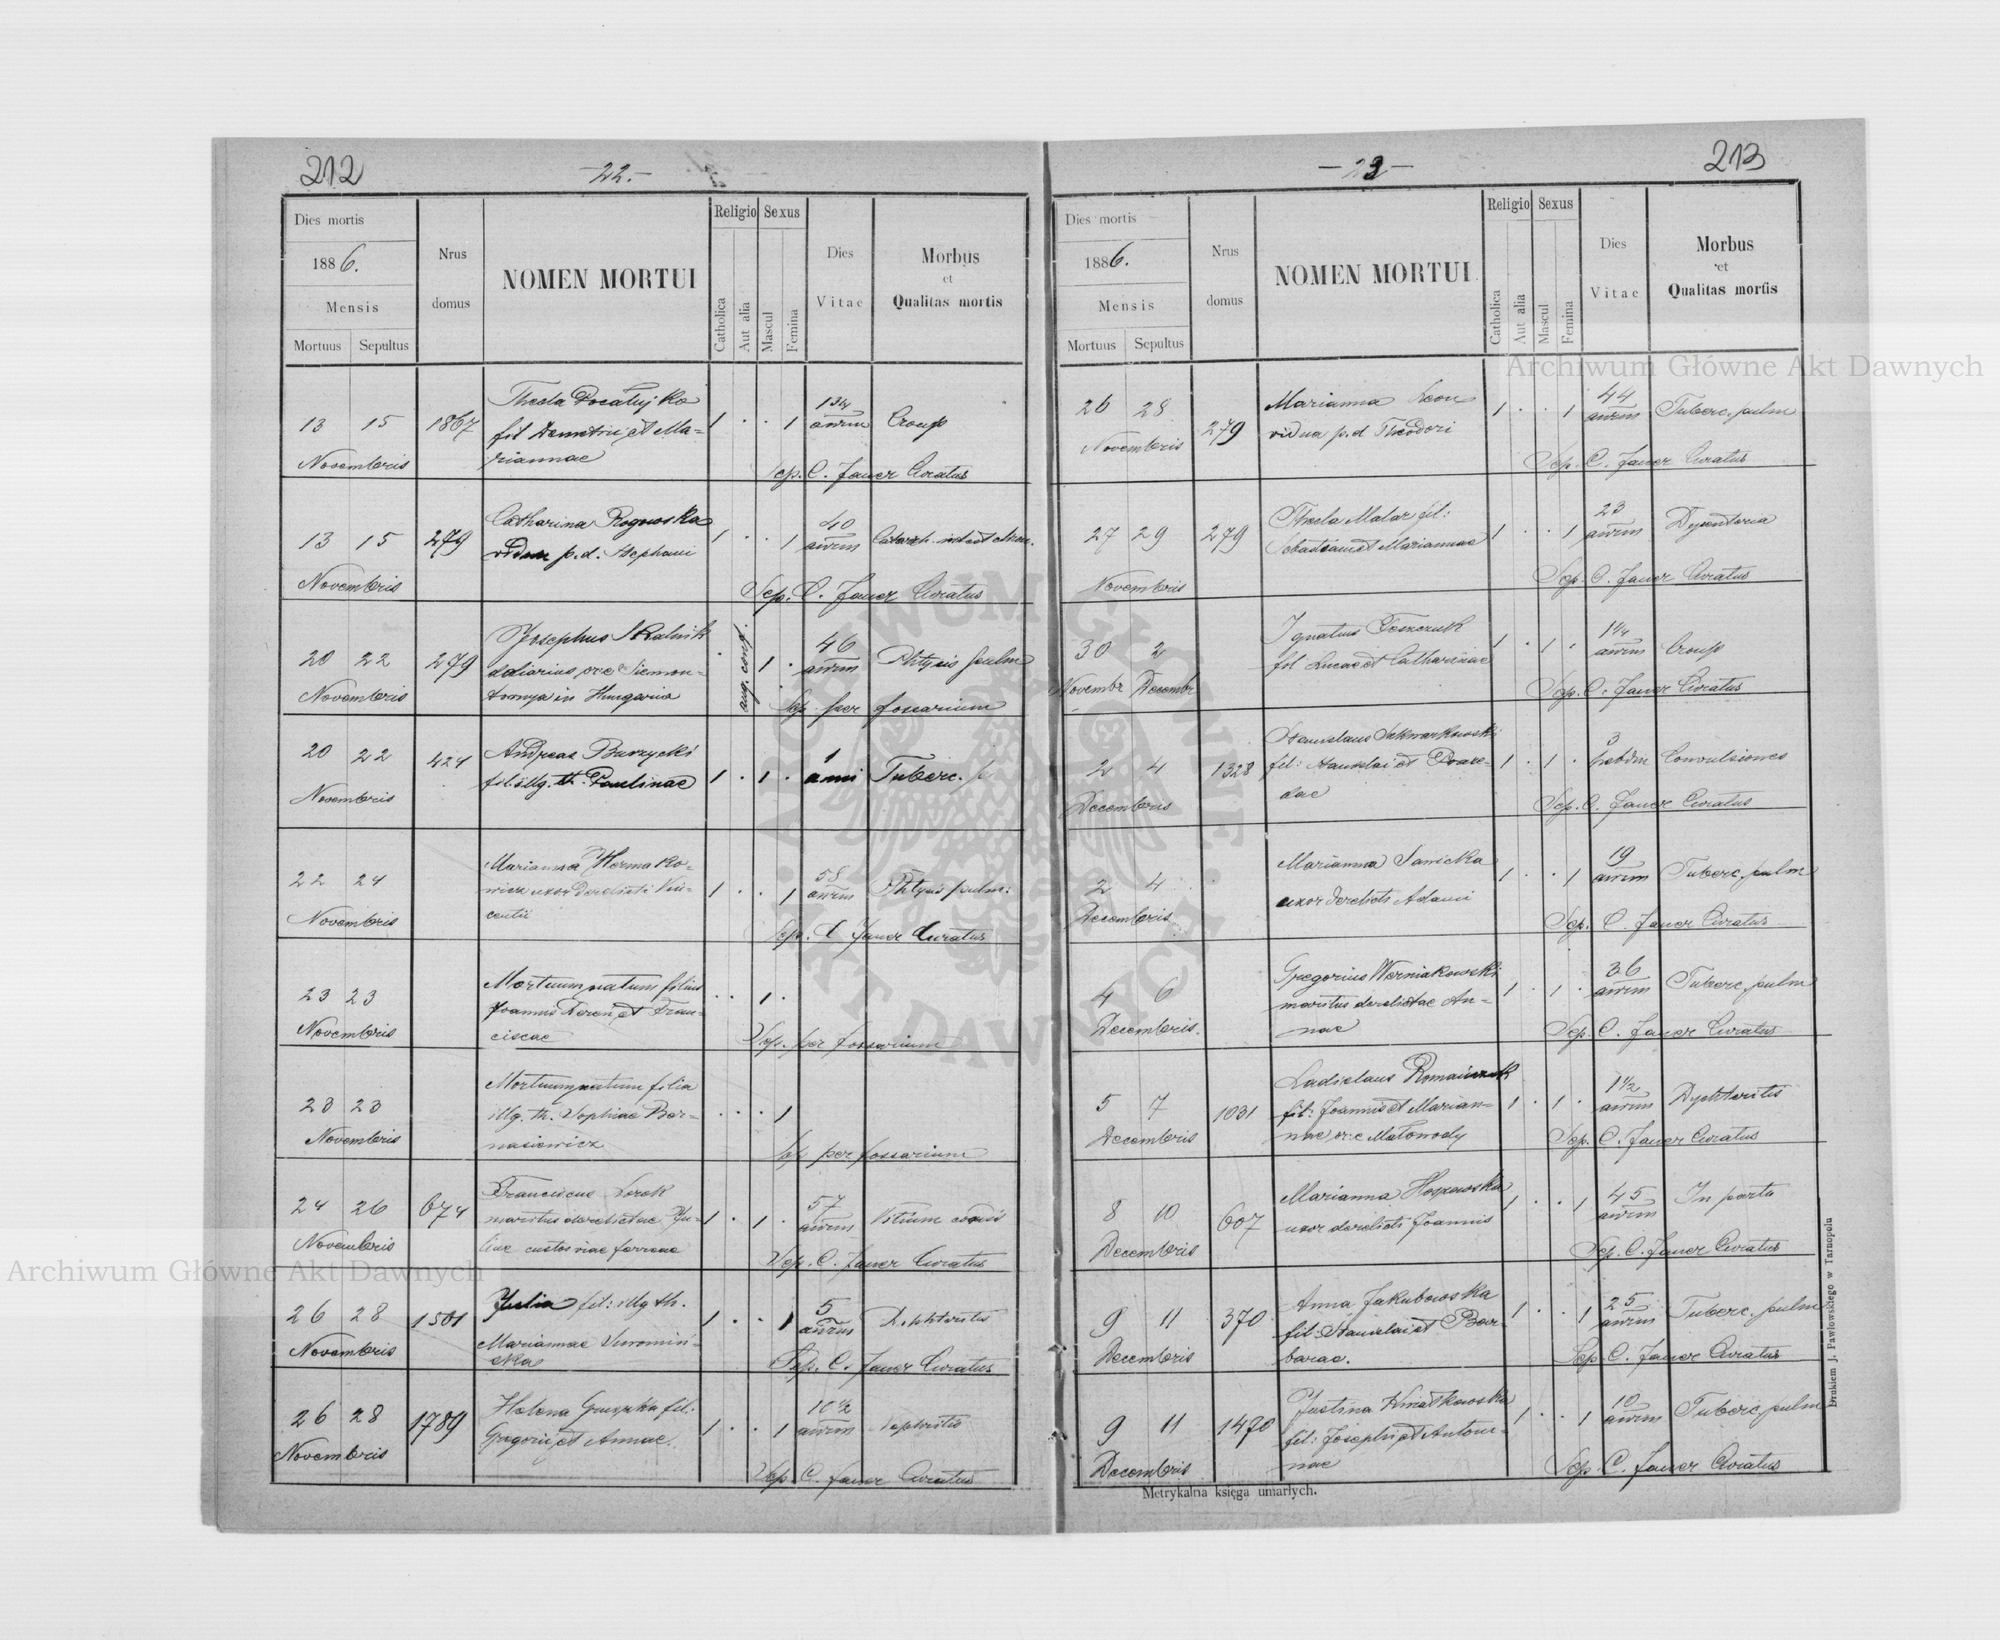 212
-22.-
Dies mortis
1886.
Mensis
Mortuus Sepultus
Nrus domus
NOMEN MORTUI
Religio Sexus
Catholica
Aut alia
Mascul
Femina
Dies Vitae
Morbus
et
Qualitas mortis
13 15 1867 Thecla
fil Demetrii et Ma-
riannae
1 . . 1
annm Croup
Novembris
Sep. C. Jauer Curatus
13 15 279 Catharina Rogowska
vidua p.d. Stephani
1 . . 1
40
annm
Novembris
Sep. C. Jauer Curatus
20 22 279 Josephus Skalnik
in Hungaria
aug. conf.
1 .
46
annm Phtysis pulm
Novembris
Sep. per fossarium
20 22 424 Andreas Burzycki
fil. illg. th. Paulinae
1 . 1 .
1
anni Tuberc. p
Novembris
22 24 Marianna
uxor derelicti Vin-
centii
1 . . 1
58
annm Phtysis pulm:
Novembris
Sep. C Jauer Curatus
23 23 Mortuum natum filius
Joannis Feren et Fran-
ciscae
. . 1 .
Novembris
Sep. per fossarium
23 23 Mortuum natum filia
illg. th. Sophiae Ber-
nasiewicz
. . . 1
Novembris
Sep per fossarium
24 26 674 Franciscus
maritus derelictae Ju-
liae custos viae ferreae
1 . 1 .
57
annm Vitium cordis
Novembris
Sep. C. Jauer Curatus
26 28 1501 Julia fil: illg th.
Mariannae
1 . . 1
5
annm
Novembris
Sep. C. Jauer Curatus
26 28 1789 Helena fil:
Gregorii et Annae.
1 . . 1
10 1/2
annm
Novembris
Sep C. Jauer Curatus
213
-23-
Dies mortis
1886.
Mensis
Mortuus Sepultus
Nrus domus
NOMEN MORTUI
Religio Sexus
Catholica
Aut alia
Mascul
Femina
Dies Vitae
Morbus
et
Qualitas mortis
26 28 279 Marianna
vidua p.d Theodori
1 . . 1
44
annm Tuberc. pulm
Novembris
Sep. C. Jauer Curatus
27 29 279 Thecla Malar fil:
Sebastiani et Mariannae
1 . . 1
23
annm Dysenteria
Novembris
Sep. C. Jauer Curatus
30 2 Ignatius Teszczuk
fil Lucae et Catharinae
1 . 1 .
annm Croup
Novembr Decembr
Sep. C. Jauer Curatus
2 4 1328 Stanislaus
fil: Stanislai et Praxe-
dae
1 . 1 .
3
hebdm Convulsiones
Decembris
Sep. C. Jauer Curatus
2 4 Marianna Sawicka
uxor derelicti Adami
1 . . 1
19
annm Tuberc. pulm
Decembris
Sep. C. Jauer Curatus
4 6 Gregorius Werniakowski
maritus derelictae An-
nae
1 . 1 .
36
annm Tuberc. pulm
Decembris.
Sep C. Jauer Curatus
5 7 1031 Ladislaus Romańczuk
fil: Joannis et Marian-
nae
1 . 1 .
1 1/2
annm Dyphteritis
Decembris
Sep. C. Jauer Curatus
8 10 607 Marianna
uxor derelicti Joannis
1 . . 1
45
annm In partu
Decembris
Sep. C. Jauer Curatus
9 11 370 Anna Jakubowska
fil: Stanislai et Bar-
barae.
1 . . 1
25
annm Tuberc. pulm
Decembris
Sep. C. Jauer Curatus
9 11 1470 Justina Kwiatkowska
fil: Josephi et Antoni-
nae
1 . . 1
10
annm Tuberc. pulm
Decembris
Sep. C. Jauer Curatus
Metrykalna księga umarłych.
Drukiem J. Pawłowskiego w Tarnopolu
Archiwum Główne Akt Dawnych
Archiwum Główne Akt Dawnych
ARCHIWUM GŁÓWNE AKT DAWNYCH